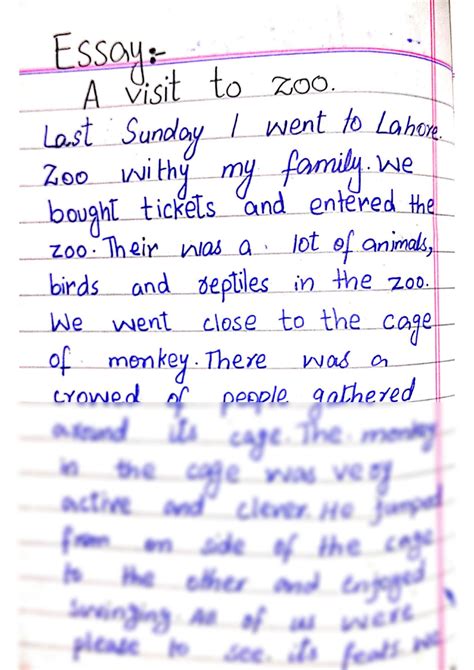 Essay:-
A visit to zoo.
Last Sunday I went to Lahore.
Zoo withy my family. We
bought tickets and entered the
zoo. Their was a. lot of animals,
birds and reptiles in the zoo.
We went close to the cage
of monkey. There was a
crowed of people gathered
around its cage. The monkey
in the cage was very
active and clever. He jumped
from on side of the cage
to the other and enjoyed
swinging. All of us were
please to see. its feats. We